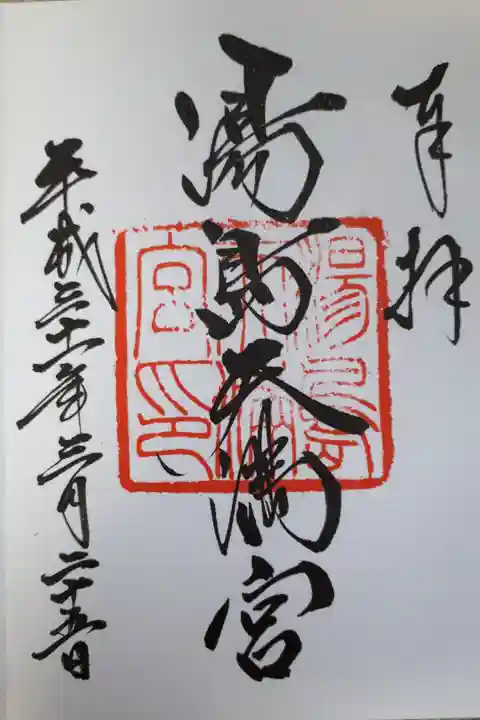 奉拝
湯島天満宮
湯島天満宮印
平成三十一年三月二十五日